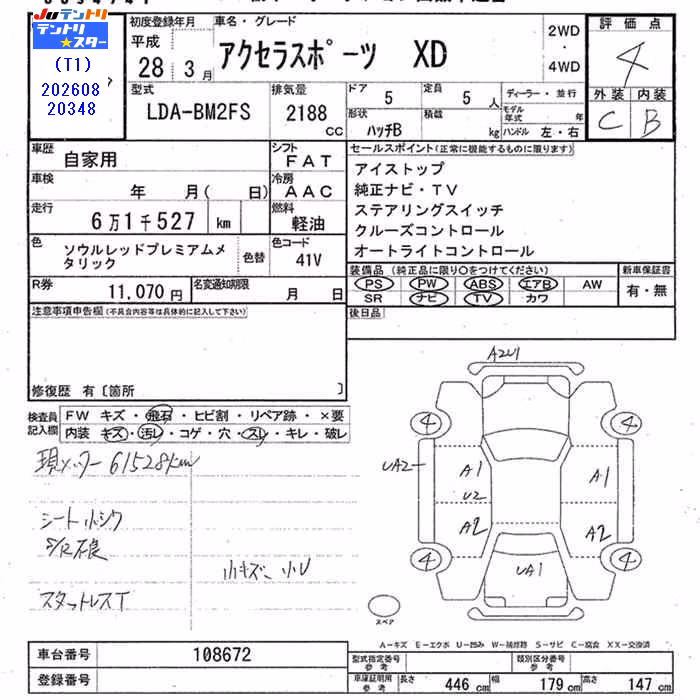 JUテントリ
テントリ★スター
(T1)
202608
20348
初度登録年月
平成
28 年 3 月
車名・グレード
アクセラスポーツ XD
2WD
・
4WD
評価点
4
外装 内装
C B
型式
LDA-BM2FS
排気量
2188 cc
ドア 5
定員 5 人
形状 ハッチB
積載 kg
ディーラー・並行
モデル年式 年
ハンドル 左・右
車歴 自家用
シフト FAT
車検 年 月( 日)
冷房 AAC
走行 6万1千527 km
燃料 軽油
色 ソウルレッドプレミアムメタリック
色替
色コード 41V
R券 11,070 円
名変通知期限 月 日
セールスポイント(正常に機能するものに限ります)
アイストップ
純正ナビ・TV
ステアリングスイッチ
クルーズコントロール
オートライトコントロール
装備品 (純正品に限り○をつけてください)
PS PW ABS エアB AW
SR ナビ TV カワ
新車保証書
有・無
後日品
注意事項申告欄(不具合内容等は具体的に記入して下さい)
修復歴 有〔箇所 〕
検査員記入欄
FW キズ・飛石・ヒビ割・リペア跡・×要
内装 キズ・汚レ・コゲ・穴・スレ・キレ・破レ
現メーター 61528km
シート小シワ
S/R不良
小キズ、小U
スタットレスT
A2U1
4
4
UA2
A1
A1
U2
A2
A2
4
4
UA1
スペア
A-キズ E-エクボ U-凹み W-補修跡 S-サビ C-腐食 XX-交換済
車台番号 108672
登録番号
型式指定番号参考
類別区分番号参考
車庫証明用参考
長さ 446 cm
幅 179 cm
高さ 147 cm